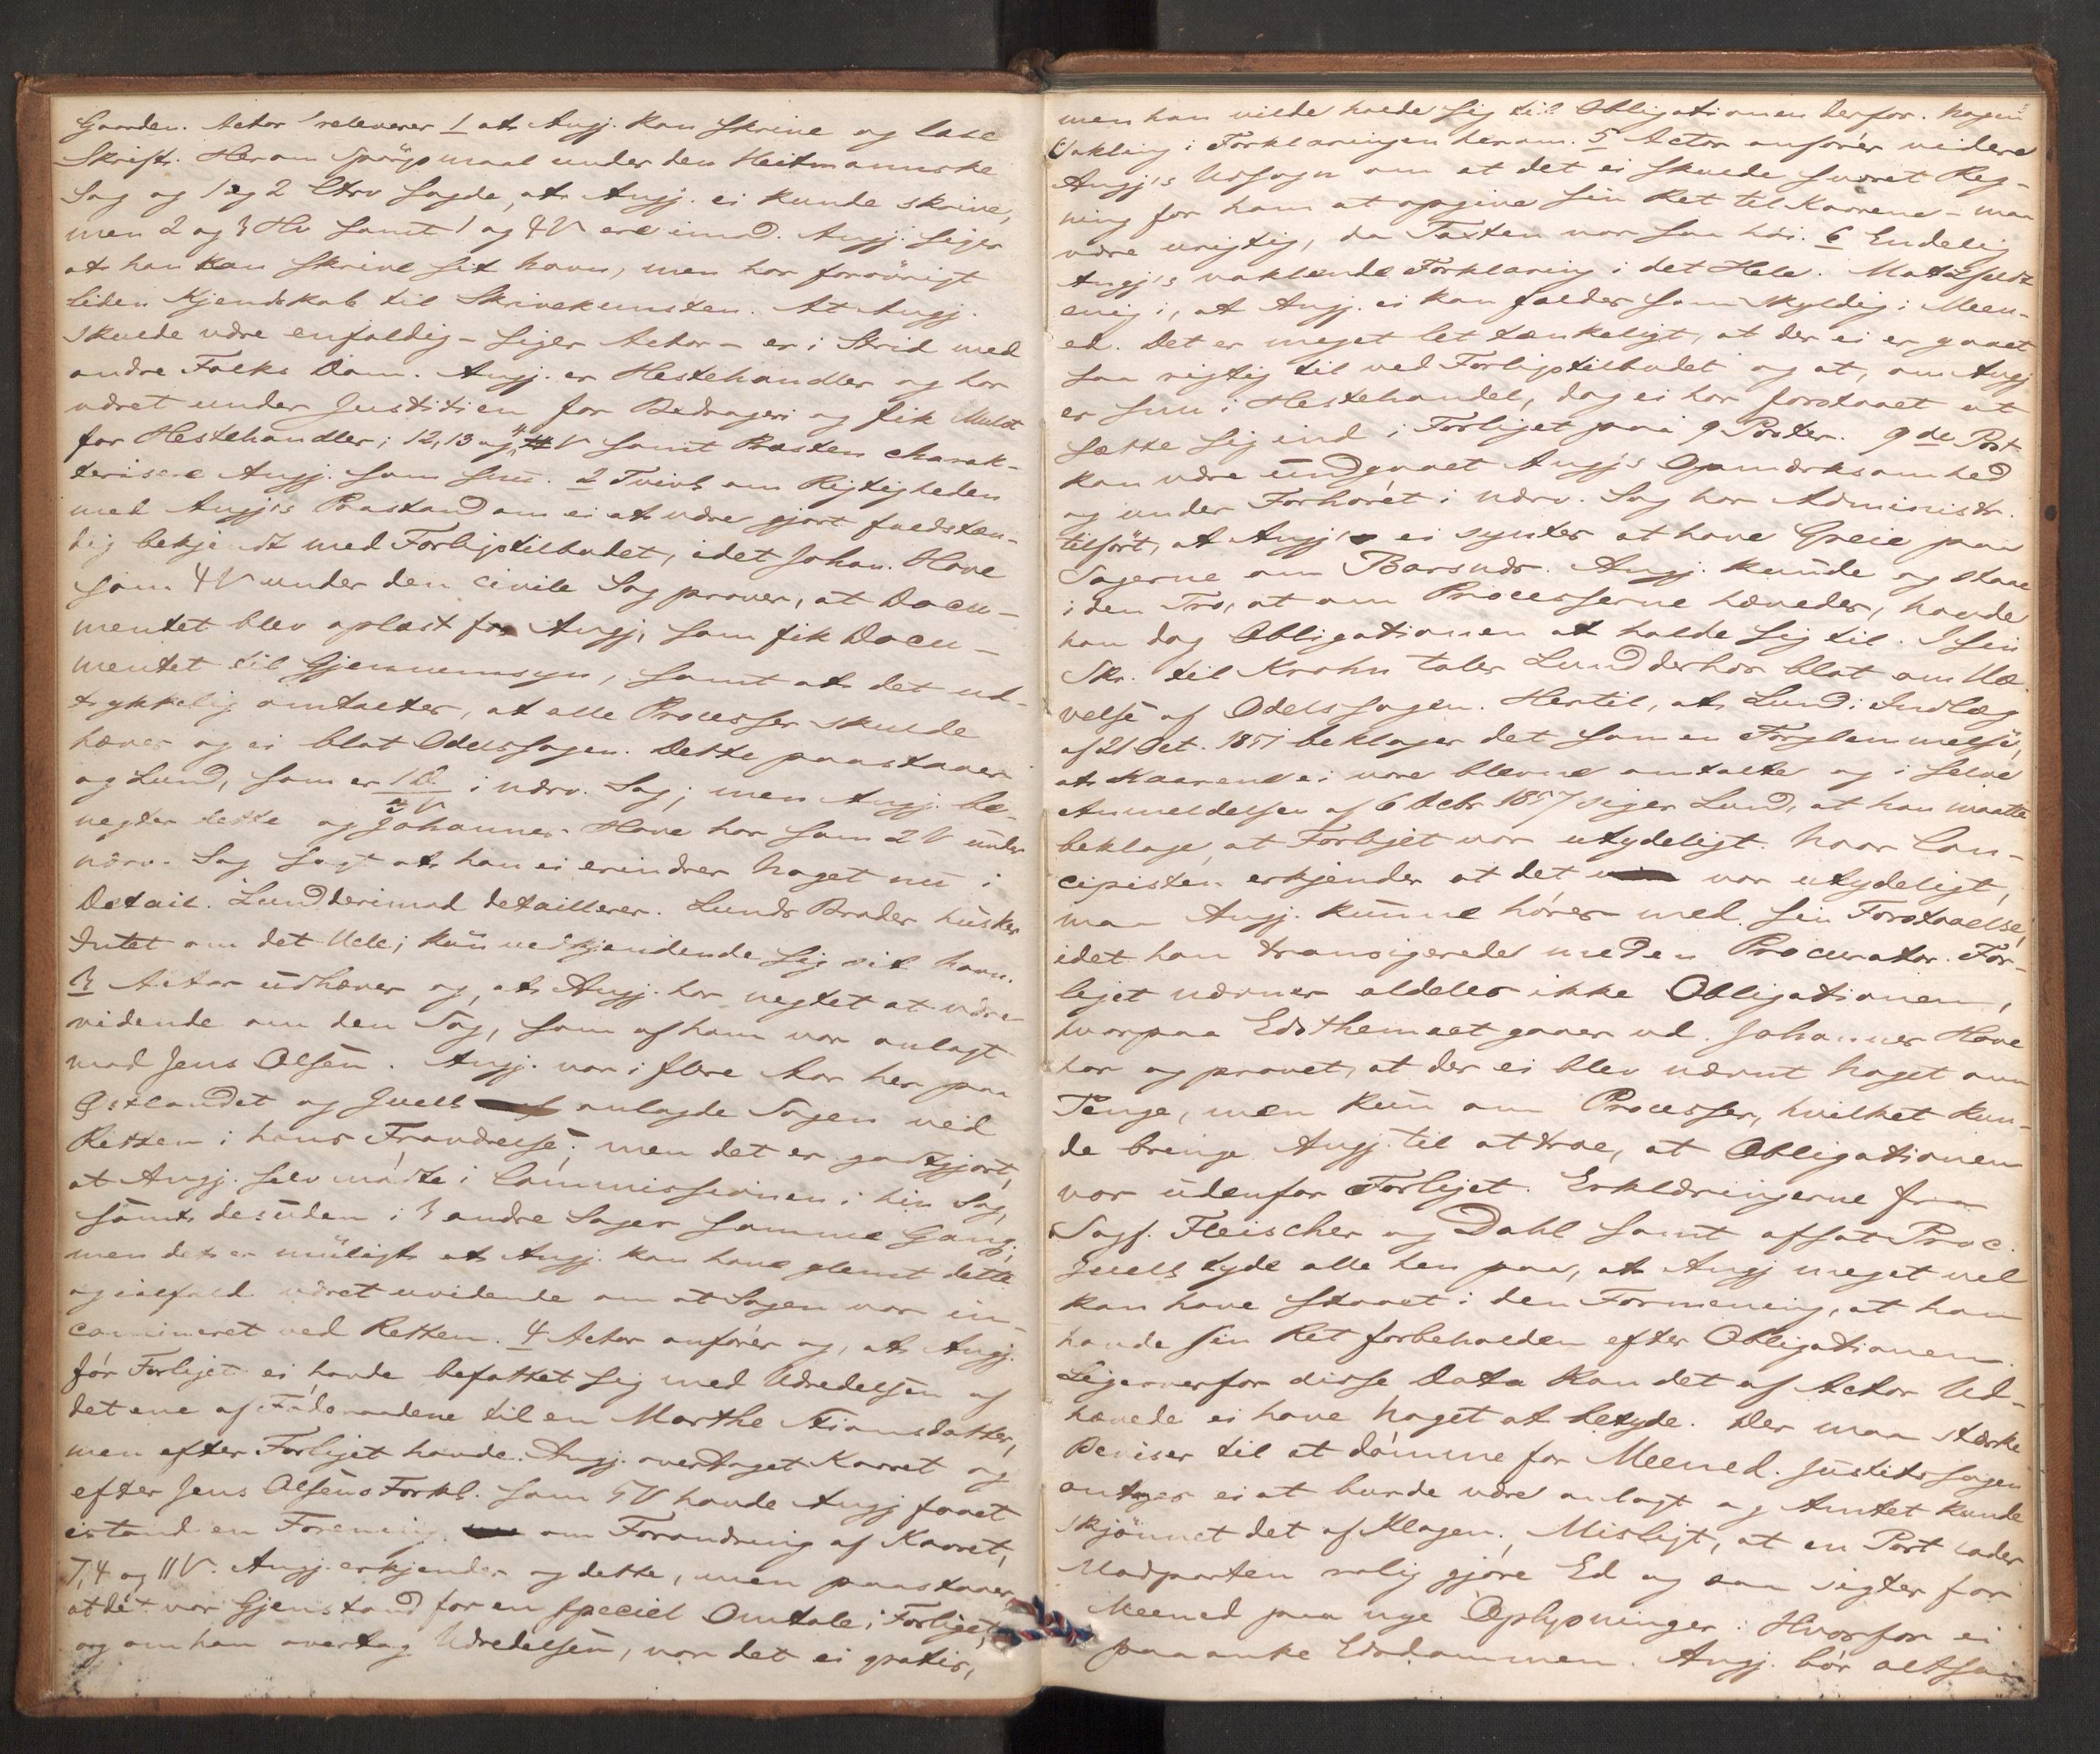 Gaarden. Actor releverer 1 at Angj. kan skrive og læse
Skrift. Herom Spörgsmaal under den Heitmannske
Sag og 1 og 2 Ctrv sagde, at Angj. ei kunde skrive,
men 2 og 3 Hv samt 1 og 4 V ere imod. Angj. siger
at han kan skrive sit Navn, men har forövrigt
liden Kjendskab til Skrivekunsten. At Angj.
skulde være enfoldig - siger Actor - er i Strid med
andre Folks Dom. Angj. er Hestehandler og har
været under Justitien for Bedrageri og fik Mulct
for Hestehandler; 12, 13 og V samt Præsten charak-
terisere Angj. som snu. 2 Tvivl om Rigtigheden
med Angjs Paastand om ei at være gjort fuldstæn-
dig bekjendt med Forligstilbudet, idet Johan. Hove
som 4 V under den civile Sag prover, at Docu-
mentet blev oplæst for Angj, som fik Docu-
mentet til Gjennemsyn, samt at det ud-
trykkelig omtaltes, at alle Processer skulde
hæves og ei blot Odelssagen. Dette paastaaer
og Lund, som er i nærv. Sag; men Angj. be-
negter dette og Johannes Hove har som 2 V under
nærv. Sag sagt at han ei erindrer Noget nu i
Detail. Lund derimod detaillerer. Lunds Broder husker
Intet om det Hele; kun vedkjendende sig sit Navn.
3 Actor udhæver og, at Angj. har negtet at være
vidende om den Sag, som af ham var anlagt
mod Jens Olsen. Angj. var i flere Aar her paa
Östlandet og Juell anlagde Sagen ved
Retten i hans Fraværelse; men det er godtgjort,
at Angj. selv mödte i Commissionen i hin Sag,
samt desuden i 3 andre Sager samme Gang;
men det er muligt at Angj. kan have glemt dette
og ialfald været uvidende om at Sagen var in-
camineret ved Retten. 4 Actor anförer og, at Angj.
för Forliget ei havde befattet sig med Udredelsen af
det ene af Föderaadene til en Marthe Stiansdatter,
men efter Forliget havde Angj. overtaget Kaaret og
efter Jens Olsens Forkl. som 5 V havde Angj faaet
istand en Forening om Forandring af Kaaret,
7, 4 og 11 V. Angj. erkjender og dette, men paastaaer,
at det var Gjenstand for en speciel Omtale i Forliget,
og om han overtog Udredelsen, var det ei gratis,
men han vilde holde sig til Obligationen derfor. Nogen
Vakling i Forklaringen herom. 5 Actor anförer videre
Angj's Udsagn om at det ei skulde svaret Reg-
ning for ham at opgive sin Ret til Kaarene - maa
være urigtig, da Taxten var saa höi. 6 Endelig
Angj's vaklende Forklaring i det Hele.
enig i, at Angj. ei kan fældes som skyldig i Meen-
ed. Det er meget let tænkeligt, at der ei er gaaet
saa rigtig til ved Forligstilbudet og at, om Angj
er snu i Hestehandel, dog ei har forstaaet at
sætte sig ind i Forliget paa 9 Poster. 9de Post
kan være undgaaet Angj's Opmærksomhed
og under Forhöret i nærv. Sag har Administr.
tilfört, at Angj. ei syntes at have Greie paa
Sagerne om Angj. kunde og staae
i den Tro, at om Processerne hævedes, havde
han dog Obligationen at holde sig til. I sin
Skr. til Krohn taler Lund derhos blot om Hæ-
velse af Odelssagen. Hertil, at Lund i Indlæg
af 21 Oct. 1857 beklager det som en Forglemmelse,
at Kaarene ei vare blevne omtalte og i selve
Anmeldelsen af 6 Octbr 1857 siger Lund, at han maatte
beklage, at Forliget var utydeligt. Naar Con-
cipisten erkjender at det var utydeligt,
maa Angj. kunne höres med sin Forstaaelse,
idet han transigerede med en Procurator. For-
liget nævner aldeles ikke Obligationen,
hvorpaa Edsthemaet gaaer ud. Johannes Hove
har og provet, at der ei blev nævnt Noget om
Penge, men kun om Processer, hvilket kun-
de bringe Angj. til at troe, at Obligationen
var udenfor Forliget. Erklæringerne fra
Sagf. Fleischer og Dahl samt afsat Proc.
Juell tyde alle hen paa, at Angj meget vel
kan have staaet i den Formening, at han
havde sin Ret forbeholden efter Obligationen.
Ligeoverfor disse Data kan det af Actor Ud-
hævede ei have Noget at betyde. Der maa stærke
Beviser til at dömme for Meened. Justitssagen
antages ei at burde være anlagt og Amtet kunde
skjönnet det af Klagen. Misligt, at en Part lader
Modparten rolig gjöre Ed og saa sigter for
Meened paa nye Oplysninger. Hvorfor ei
paaanke Edsdommen. Angj. bör altsaa